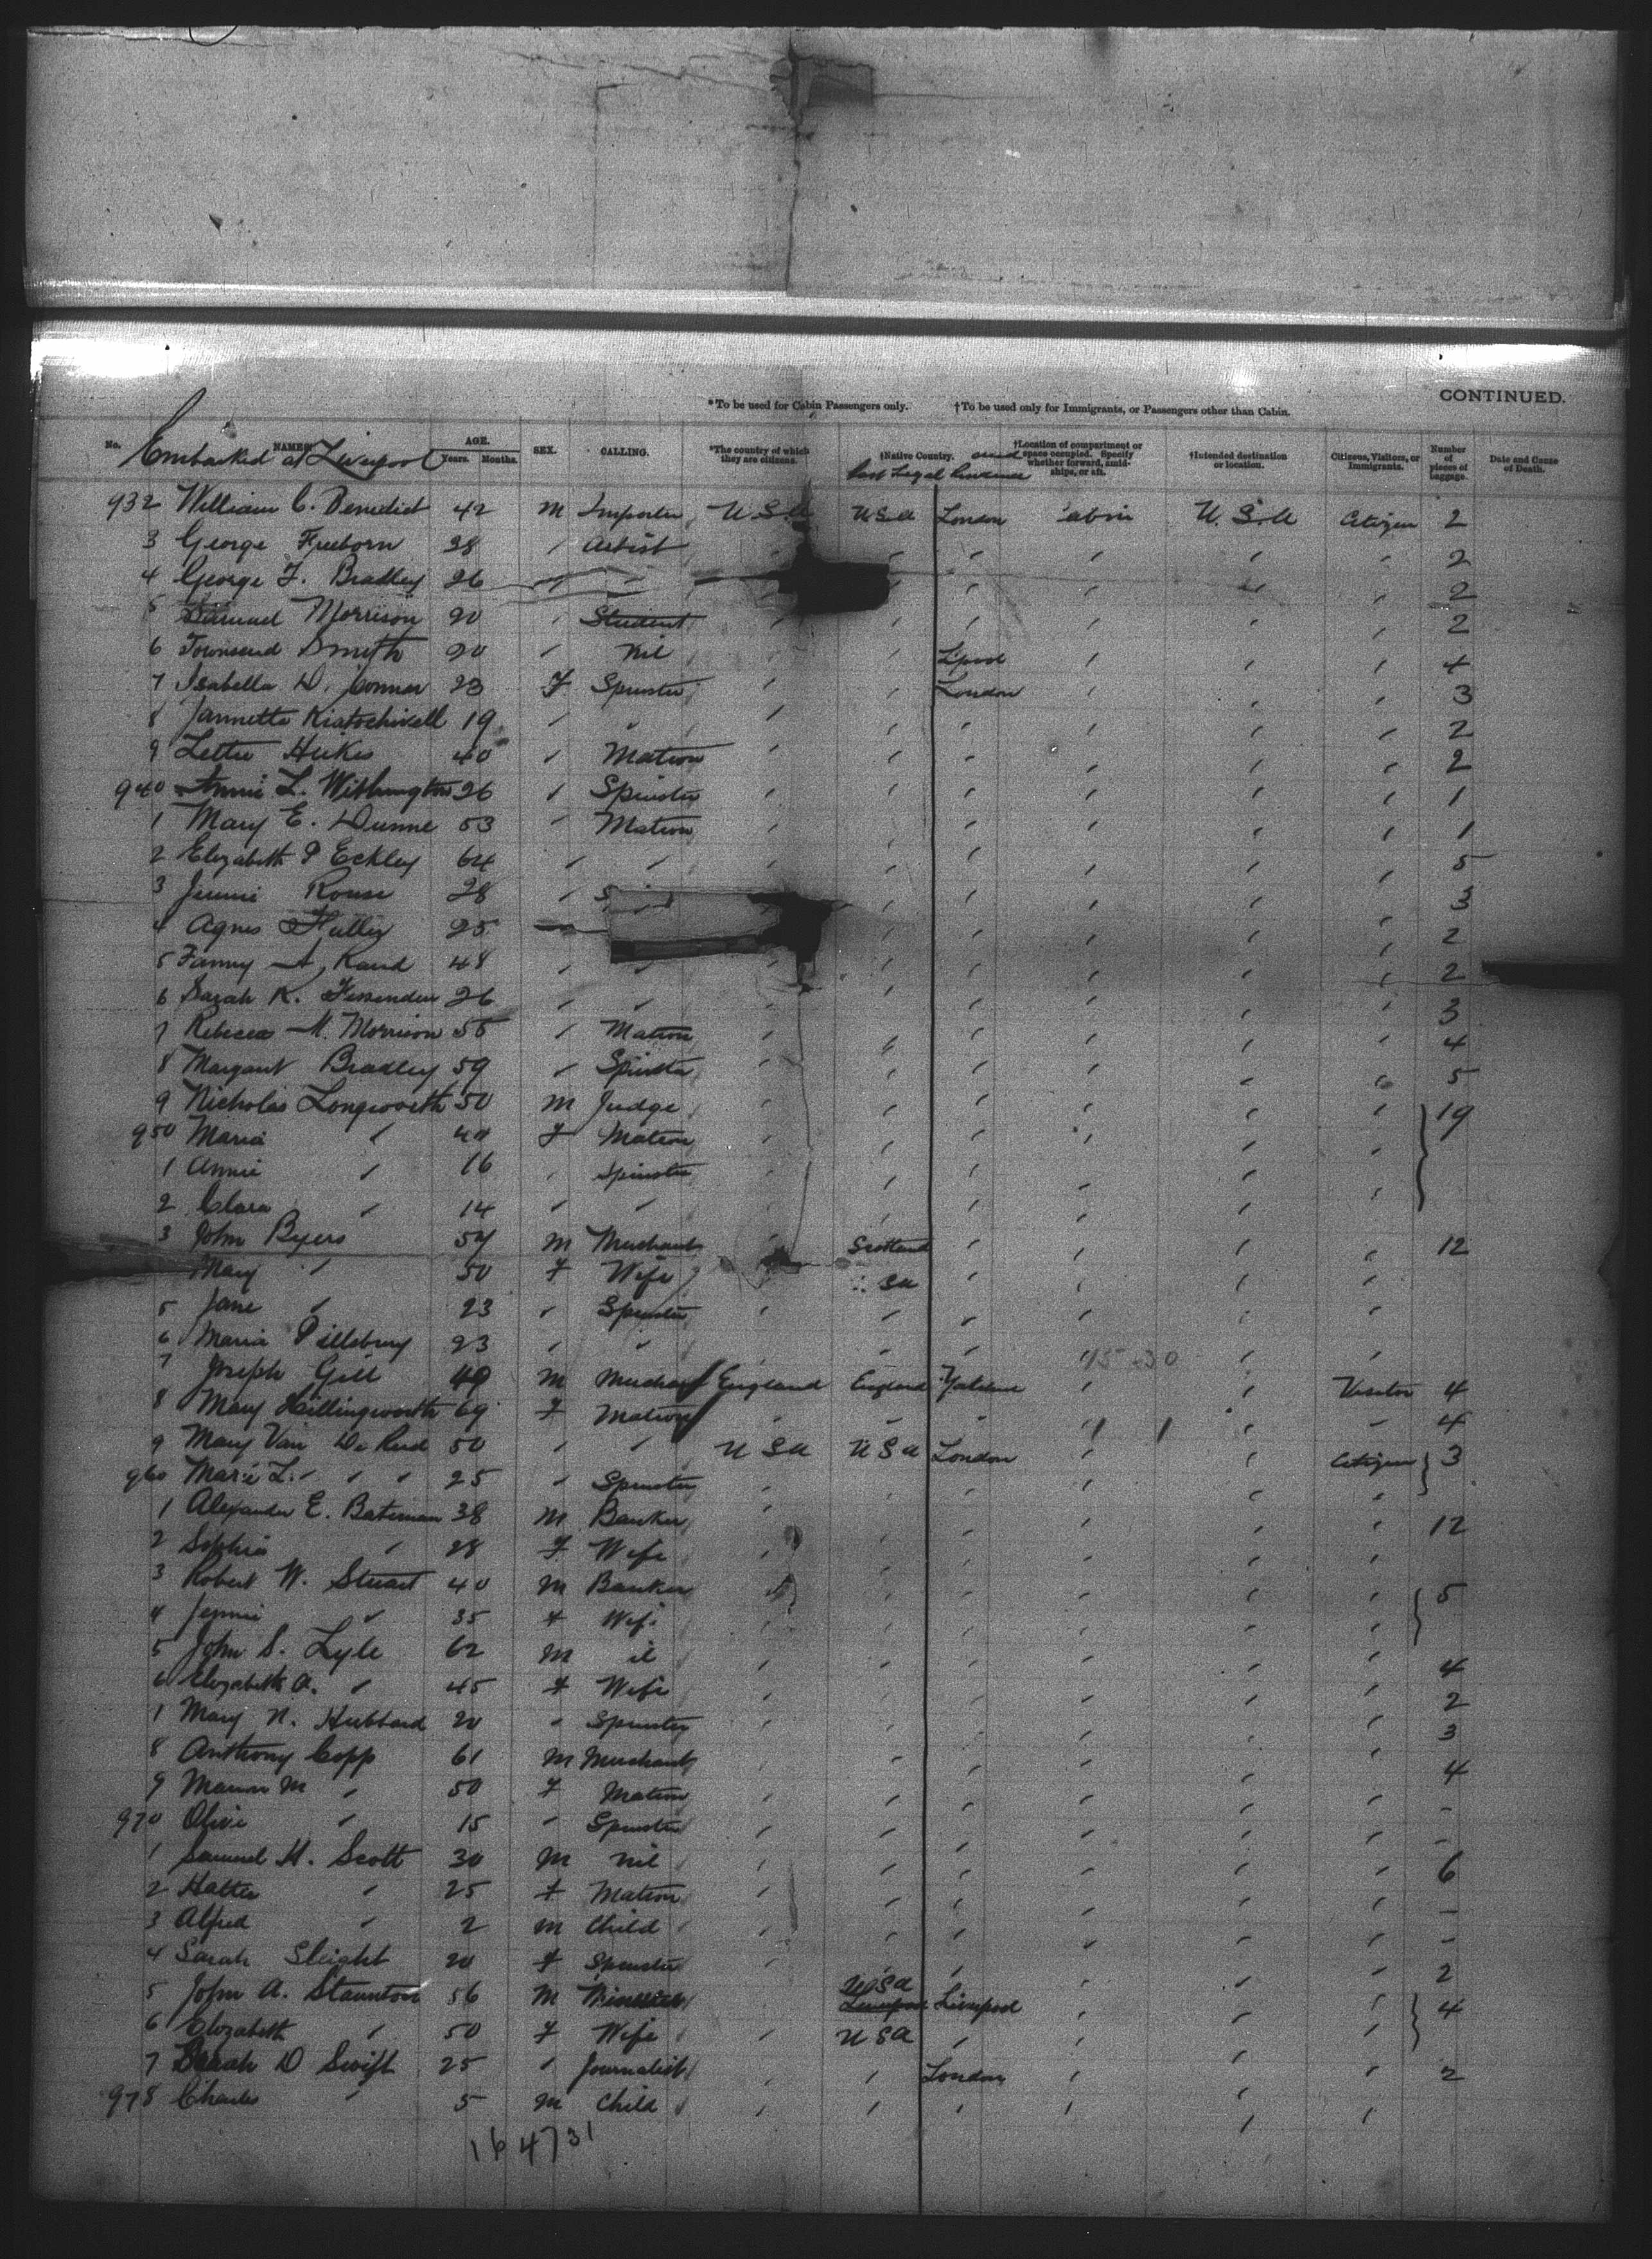 CONTINUED.
*To be used for Cabin Passengers only. †To be used only for Immigrants, or Passengers other than Cabin.
No. NAMES. AGE. Years. Months. SEX. CALLING. *The country of which they are citizens. †Native Country. †Location of compartment or space occupied. Specify whether forward, amidships, or aft. †Intended destination or location. Citizens, Visitors, or Immigrants. Number of pieces of baggage. Date and Cause of Death.
Embarked at Liverpool Last Legal Residence
932 William C. Benedict 42 M Importer U.S.A U.S.A London Cabin U.S.A Citizen 2
3 George Freeborn 38 " Artist " " " " " 2
4 George F. Bradley 26 " " " " " " " 2
5 Samuel Morrison 20 " Student " " " " " " 2
6 Townsend Smith 20 " nil " " L'pool " " " 4
7 Isabella D. Connor 23 F Spinster " " London " " " 3
8 Jannetta 19 " " " " " " " " 2
9 Lettie Heikes 40 " Matron " " " " " " 2
940 Annie L. Withington 26 " Spinster " " " " " " 1
1 Mary E. Dunne 53 " Matron " " " " " " 1
2 Elizabeth P Eckley 64 " " " " " " " " 5
3 Jennie Rouse 28 " S " " " " " 3
4 Agnes 25 " " " " " 2
5 Fanny A. Rand 48 " " " " " " " " 2
6 Sarah K. Fessenden 26 " " " " " " " " 3
7 Rebecca M. Morrison 55 " Matron " " " " " " 4
8 Margaret Bradley 59 " Spinster " " " " " " 5
9 Nicholas Longworth 50 M Judge " " " " " " 19
950 Maria " 40 F Matron " " " " " "
1 Annie " 16 " Spinster " " " " " "
2 Clara " 14 " " " " " " "
3 John Byers 54 M Merchant " Scotland " " " " 12
Mary " 50 F Wife SA " " " "
5 Jane " 23 " Spinster " " " " " "
6 Maria Pillsbury 23 " " " " " " " "
7 Joseph Gill 40 M Merchant England England " " Visitor 4
8 Mary Hillingworth 69 F Matron " " " " " " 4
9 Mary Van De 50 " " U S A U S A London " " Citizen 3
960 Marie L. " " " 25 " Spinster " " " " " "
1 Alexander E. Bateman 38 M Banker " " " " " " 12
2 Sophia " 28 F Wife " " " " "
3 Robert W. Stuart 40 M Banker " " " " " " 5
4 Jennie " 35 F Wife " " " " " "
5 John S. Lyle 62 M il " " " " " " 4
6 Elizabeth A. " 45 F Wife " " " " " " 2
Mary N. Hubbard 20 " Spinster " " " " " " 3
8 Anthony Copp 61 M Merchant " " " " " " 4
9 M " 50 F Matron " " " " " " -
970 Olive " 15 " Spinster " " " " " " -
1 Samuel H. Scott 30 M nil " " " " " " 6
2 Hattie " 25 F Matron " " " " " " -
3 Alfred " 2 M Child " " " " " " -
4 Sarah Sleight 20 F Spinster " " " " " " 2
5 John A. Staunton 56 M USA Liverpool " " " 4
6 Elizabeth " 50 F Wife " U S A " " " "
7 Sarah D Swift 25 " Journalist " " London " " " 2
978 Charles " 5 M Child " " " " " "
164731